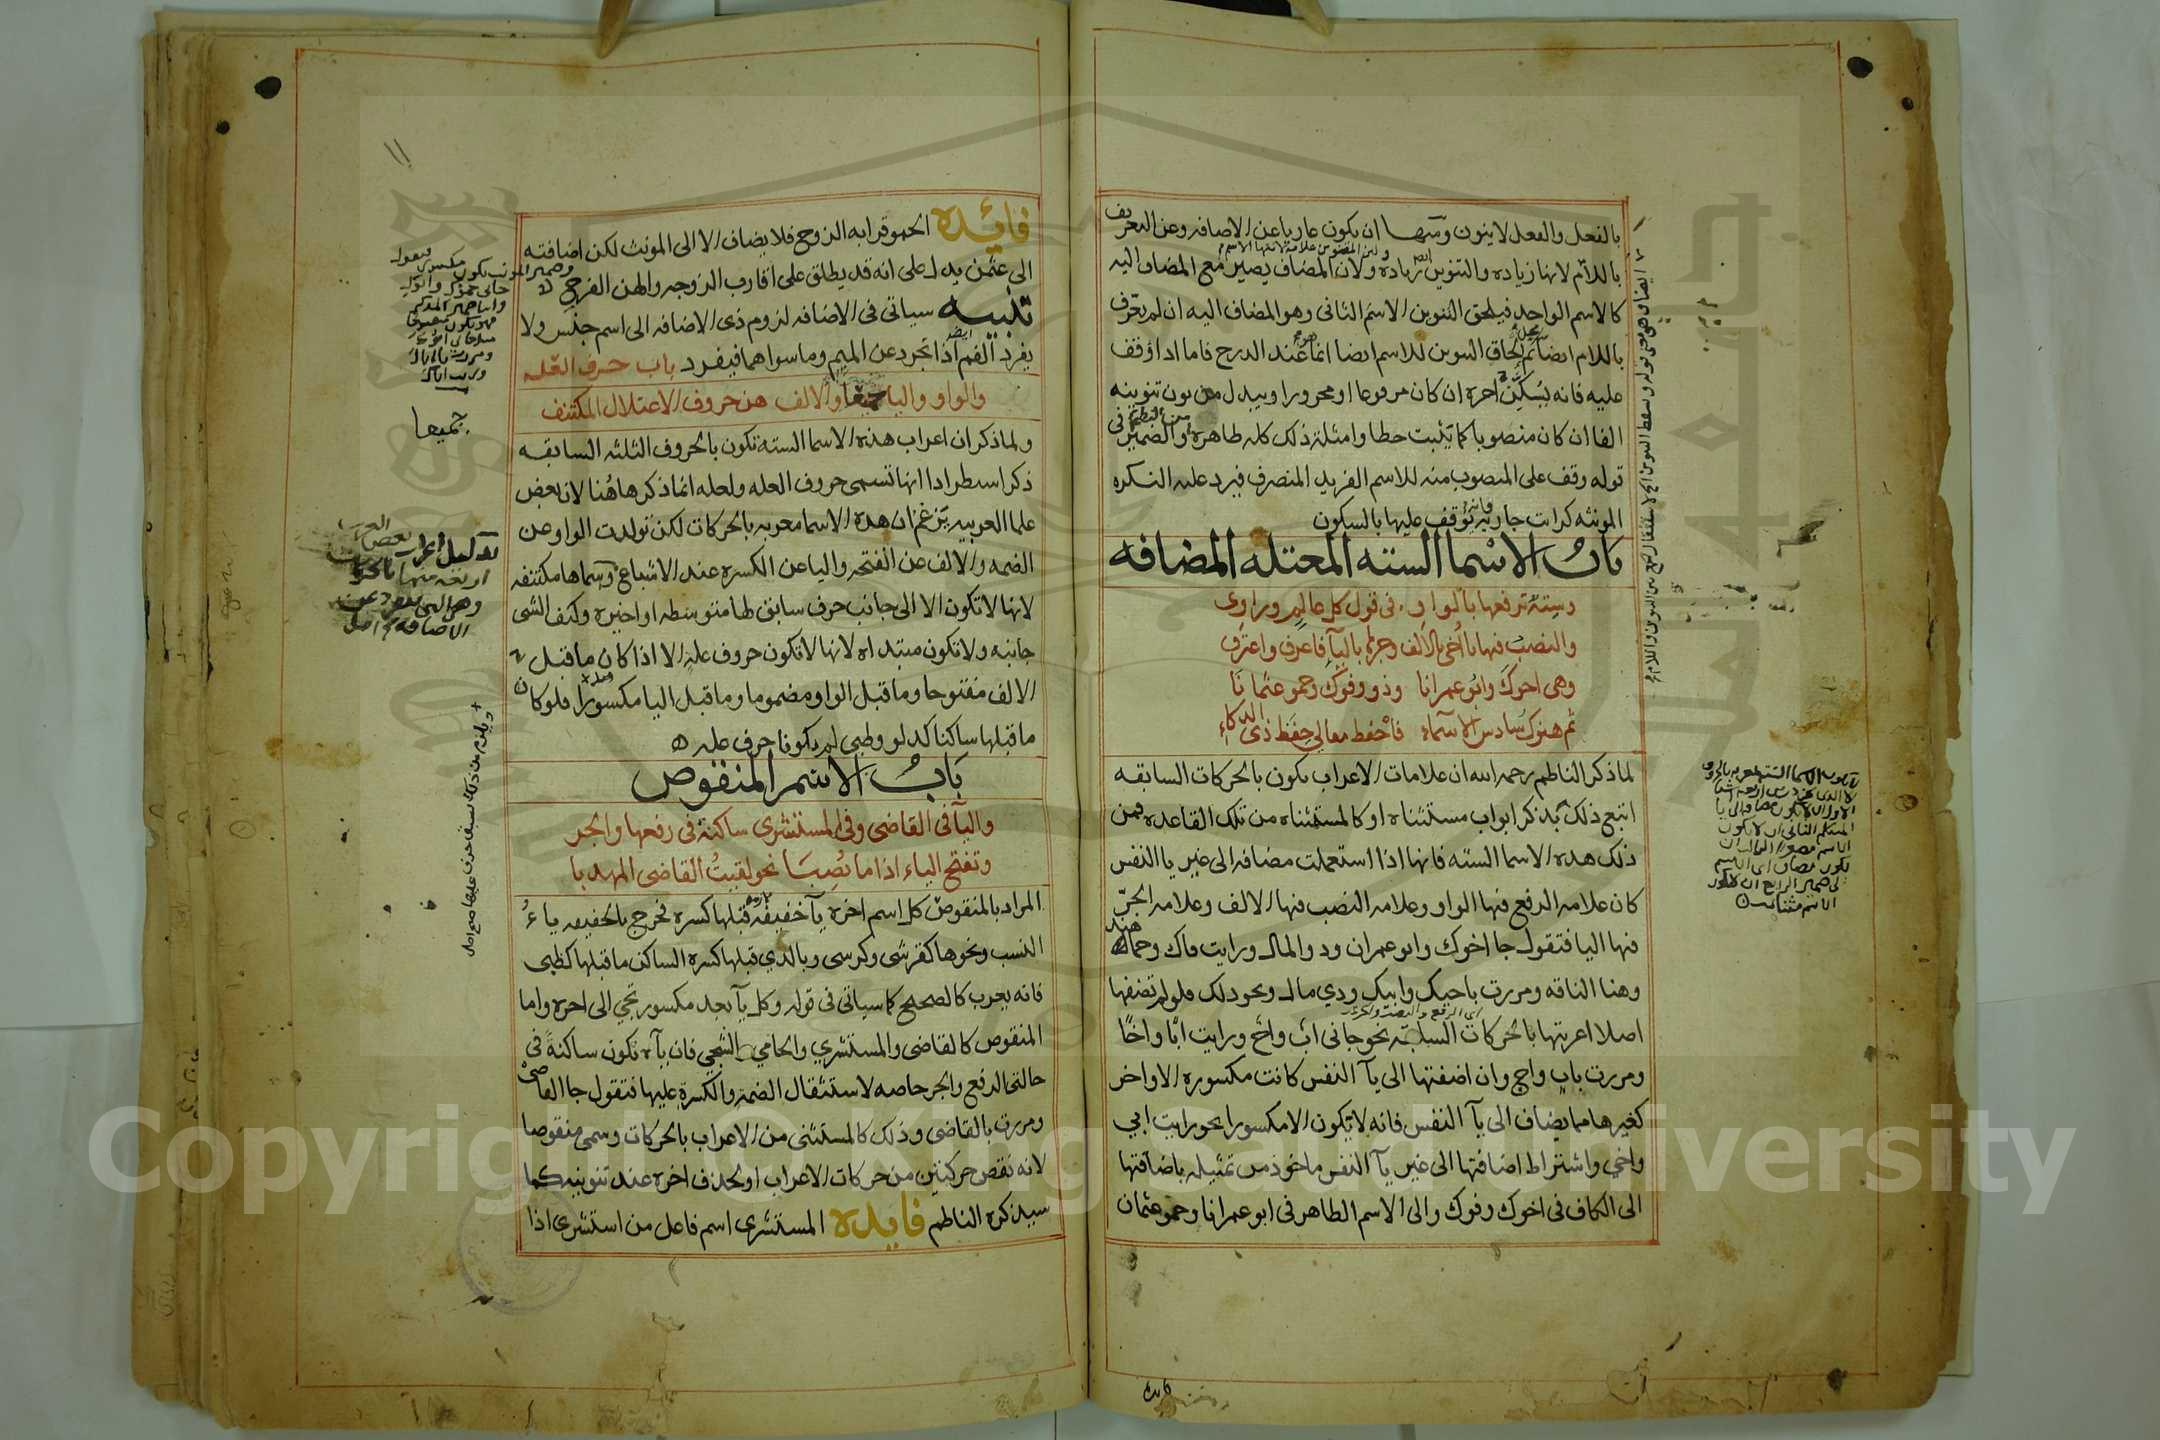 بالفعل والفعل لا ينون ومنها ان يكون عاريا عن الاضافه وعن التعريف
باللام لانها زياده والتنوين زياده ولان المضاف يصير مع المضاف اليه
كالاسم الواحد فيلحق التنوين الاسم الثانى وهو المضاف اليه ان لم يعرف
باللام ايضا ثم الحاق التنوين للاسم ايضا انما عند الدرج فاما اذا وقف
عليه فانه يسكن اخره ان كان مرفوعا او مجرورا ويبدل من نون تنوينه
الفا ان كان منصوبا كما يثبت خطا وامثلة ذلك كله ظاهره والضمير فى
قوله وقف على المنصوب منه للاسم الفريد المنصرف فيرد عليه النكره
المونثه كرايت جاريه فانه يوقف عليها بالسكون
باب الاسما السته المعتله المضافه
وستة ترفعها بالواو فى قول كل عالم وراوى
والنصب فيها يا اخى بالالف وجرها باليآ فاعرف واعترف
وهى اخوك وابو عمرانا وذو وفوك وحمو عثمانا
ثم هنوك سادس الاسماء فاحفظ مقالى حفظ ذى الذكاء
لما ذكر الناظم رحمه الله ان علامات الاعراب يكون بالحركات السابقه
اتبع ذلك بذكر ابواب مستثناه او كالمستثناه من تلك القاعده فمن
ذلك هذه الاسما السته فانها اذا استعملت مضافه الى غير يا النفس
كان علامه الرفع فيها الواو وعلامه النصب فيها الالف وعلامه الجر
فيها اليا فتقول جا اخوك وابو عمران وذو المال ورايت فاك وحماك
وهنا الناقه ومررت باخيك وابيك وذي مال ونحو ذلك فلو لم تضفها
اصلا اعربتها بالحركات السابقه نحو جانى اب واخ ورايت ابا واخا
ومررت باب واخ وان اضفتها الى يآ النفس كانت مكسوره الاواخر
كغيرها مما يضاف الى يآ النفس فانه لا يكون الا مكسورا نحو رايت ابي
واخي واشتراط اضافتها الى غير يآ النفس ماخوذ من تمثيله باضافتها
الى الكاف فى اخوك وفوك والى الاسم الظاهر فى ابو عمرانا وحمو عثمان
فايده
١١
فائده الحمو قرابه الزوج فلا يضاف الا الى المونث لكن اضافته
الى عثمن يدل على انه قد يطلق على اقارب الزوجه والهن الفرج
تنبيه سياتى فى الاضافه لزوم ذى الاضافه الى اسم جنس ولا
يفرد الفم ايضا اذا تجرد عن الميم وما سواهما فيفرد باب حرف العله
والواو واليا جميعا والالف هن حروف الاعتلال المكتنف
جميعا
ولما ذكر ان اعراب هذه الاسما السته تكون بالحروف الثلثه السابقه
ذكر استطرادا انها تسمى حروف العله ولعله انما ذكرها هنا لان بعض
علما العربيه يزعم ان هذه الاسما معربه بالحركات لكن تولدت الواو عن
الضمه والالف عن الفتحه واليا عن الكسره عند الاشباع وسماها مكتنفه
لانها لا تكون الا الى جانب حرف سابق لها متوسطه او اخيره وكنف الشى
جانبه ولا تكون مبتداه لانها لا تكون حروف عله الا اذا كان ما قبل
الالف مفتوحا وما قبل الواو مضموما وما قبل اليا مكسورا فلو كان
ما قبلها ساكنا كدلو وظبي لم يكونا حرف عله
باب الاسم المنقوص
واليآ فى القاضى وفى المستشرى ساكنة فى رفعها والجر
وتفتح الياء اذا ما نصبا نحو لقيت القاضى المهذبا
المراد بالمنقوص كل اسم اخره يآ خفيفة قبلها كسره فخرج بالخفيفه ياء
النسب ونحوها كقرشى وكرسى وبالذي قبلها كسره الساكن ما قبلها كظبى
فانه يعرب كالصحيح كما سياتى فى قوله وكل يآ بعد مكسور تجي الى اخره واما
المنقوص كالقاضى والمستشري والحامي والشجي فان يآه تكون ساكنة فى
حالتى الرفع والجر خاصه لاستثقال الضمة والكسرة عليها فتقول جا القاضى
ومررت بالقاضى وذلك كالمستثنى من الاعراب بالحركات وسمى منقوصا
لانه نقص حركتين من حركات الاعراب او لحذف اخره عند تنوينه كما
سيذكره الناظم فايده المستشرى اسم فاعل من استشرى اذا
Copyright © King Saud University